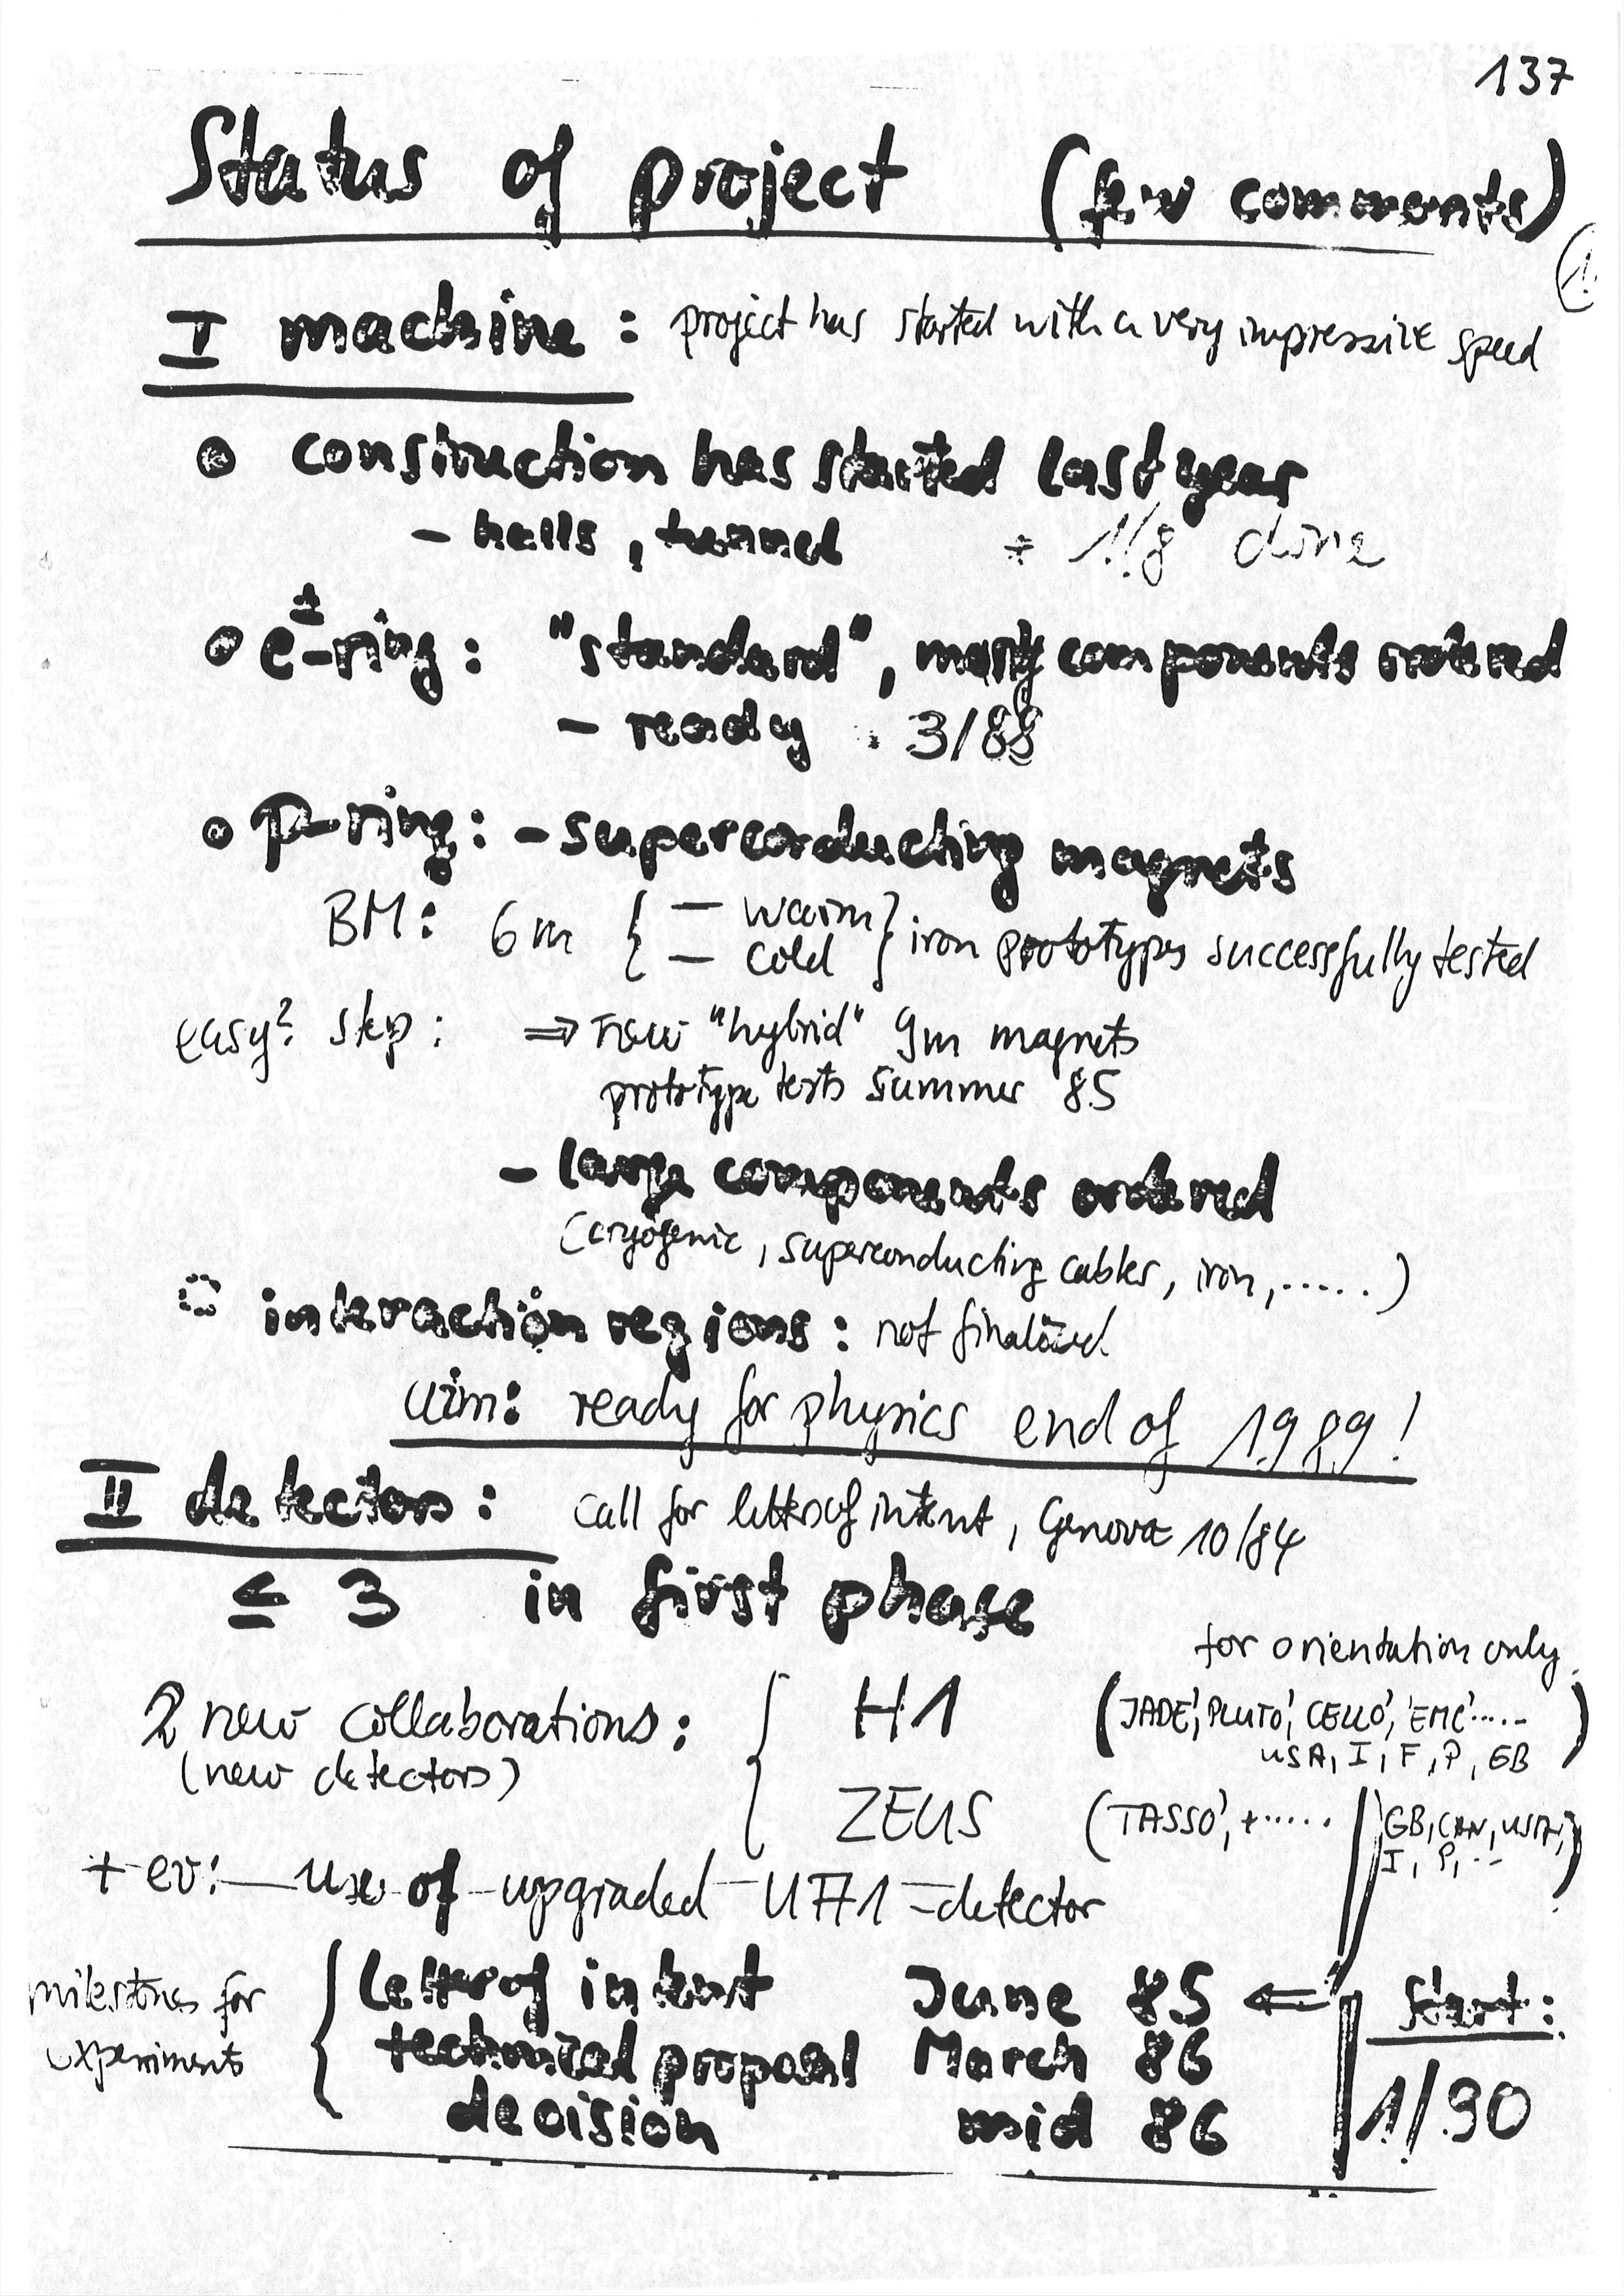 137
Status of project (few comments)
1.
I machine : project has started with a very impressive speed
construction has started last year
- halls, tunnel ÷ 1/8 done
e±-ring : "standard", many components ordered
- ready : 3/88
p-ring : - superconducting magnets
BM : 6m { - warm
- cold } iron prototypes successfully tested
easy? step : ⇒ new "hybrid" 9m magnets
prototype tests summer 85
- large components ordered
(cryogenic, superconducting cables, iron, .....)
interaction regions : not finalized
aim: ready for physics end of 1989!
II detectors : call for letters of intent, Genova 10/84
≤ 3 in first phase
for orientation only
2 new collaborations : { H1 ('JADE', 'PLUTO', 'CELLO', 'EMC' .....
(new detectors) USA, I, F, P, GB )
ZEUS ('TASSO', + ...... GB, CAN, USA,
I, P, .. )
+ ev: use of upgraded UA1-detector
milestones for { letter of intent June 85 ⇐ Start :
experiments technical proposal March 86
decision mid 86 1/90